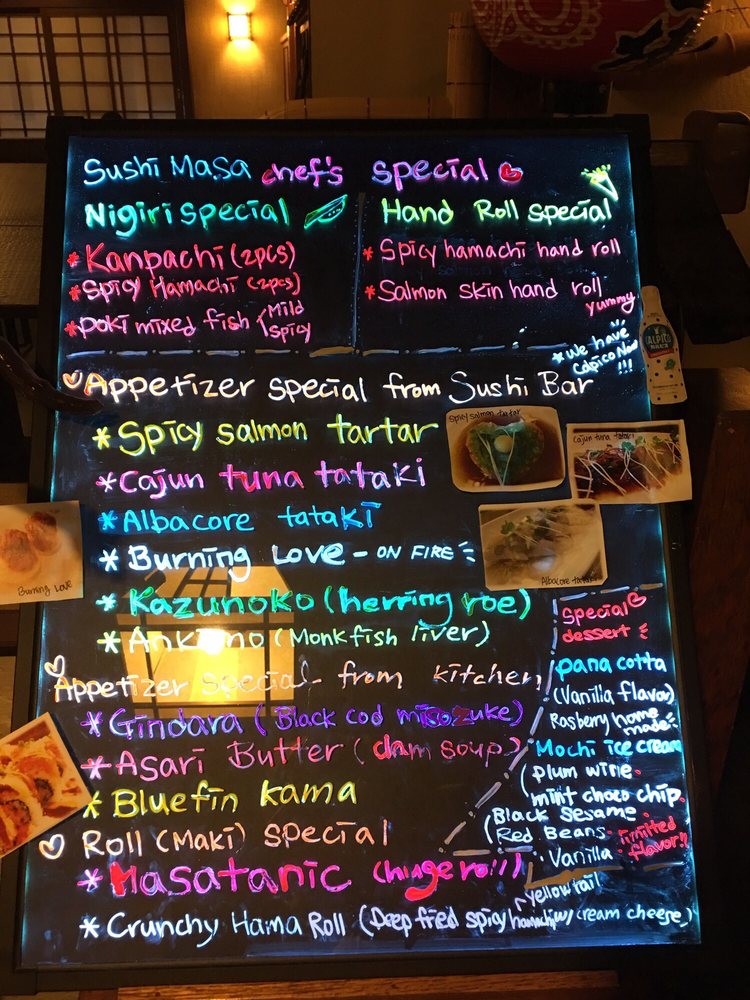 Sushi Masa chef's special
Nigiri special
* Kanpachi (2pcs)
* Spicy Hamachi (2pcs)
* poki mixed fish (Mild
Spicy
Hand Roll special
* Spicy hamachi hand roll
* Salmon skin hand roll
yummy
* We have
Calpico Now
!!!
CALPICO
Appetizer special from Sushi Bar
* Spicy salmon tartar
* Cajun tuna tataki
* Albacore tataki
* Burning Love - ON FIRE
* Kazunoko (herring roe)
* Ankimo (Monkfish liver)
Spicy salmon tartar
Cajun tuna tataki
Albacore tataki
Burning Love
Appetizer special from kitchen
* Gindara (Black cod misozuke)
* Asari Butter (clam soup)
* Bluefin kama
Roll (Maki) special
* Masatanic (hinge roll)
* Crunchy Hama Roll (Deep fried spicy hamachi w/ cream cheese)
yellow tail
Special
dessert
pana cotta
(Vanilla flavor)
Rasberry home
made
Mochi ice cream
(plum wine.
mint choco chip.
(Black Sesame
Red Beans.
Vanilla
limited
flavor!!